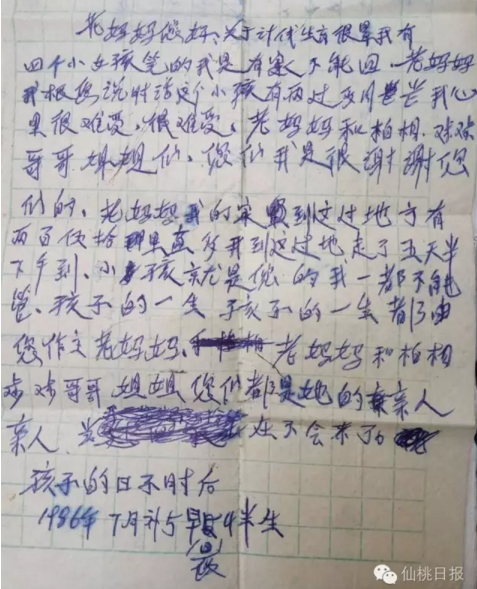 老妈妈您好、关于计划生育很累我有
四个小女孩笔的我是有家不能回、老妈妈
我根您说时话这个小孩有两过多月 我心
里很难受、很难受、老妈妈和柏相、对对
哥哥姐姐们、您们我是很谢谢您
们的、老妈妈我的家 到这过地方有
两百伍拾 里直 我到这过地走了五天半
下乡到、小孩就是您的我一都不能
管、孩子的一生 孩子的一生 都由
您作主老妈妈、老妈妈和柏相
对对哥哥 姐姐您们都是她的亲人
亲人、 在不会来了
孩子的日不时后
1986年 7月初5早 4半生
仙桃日报